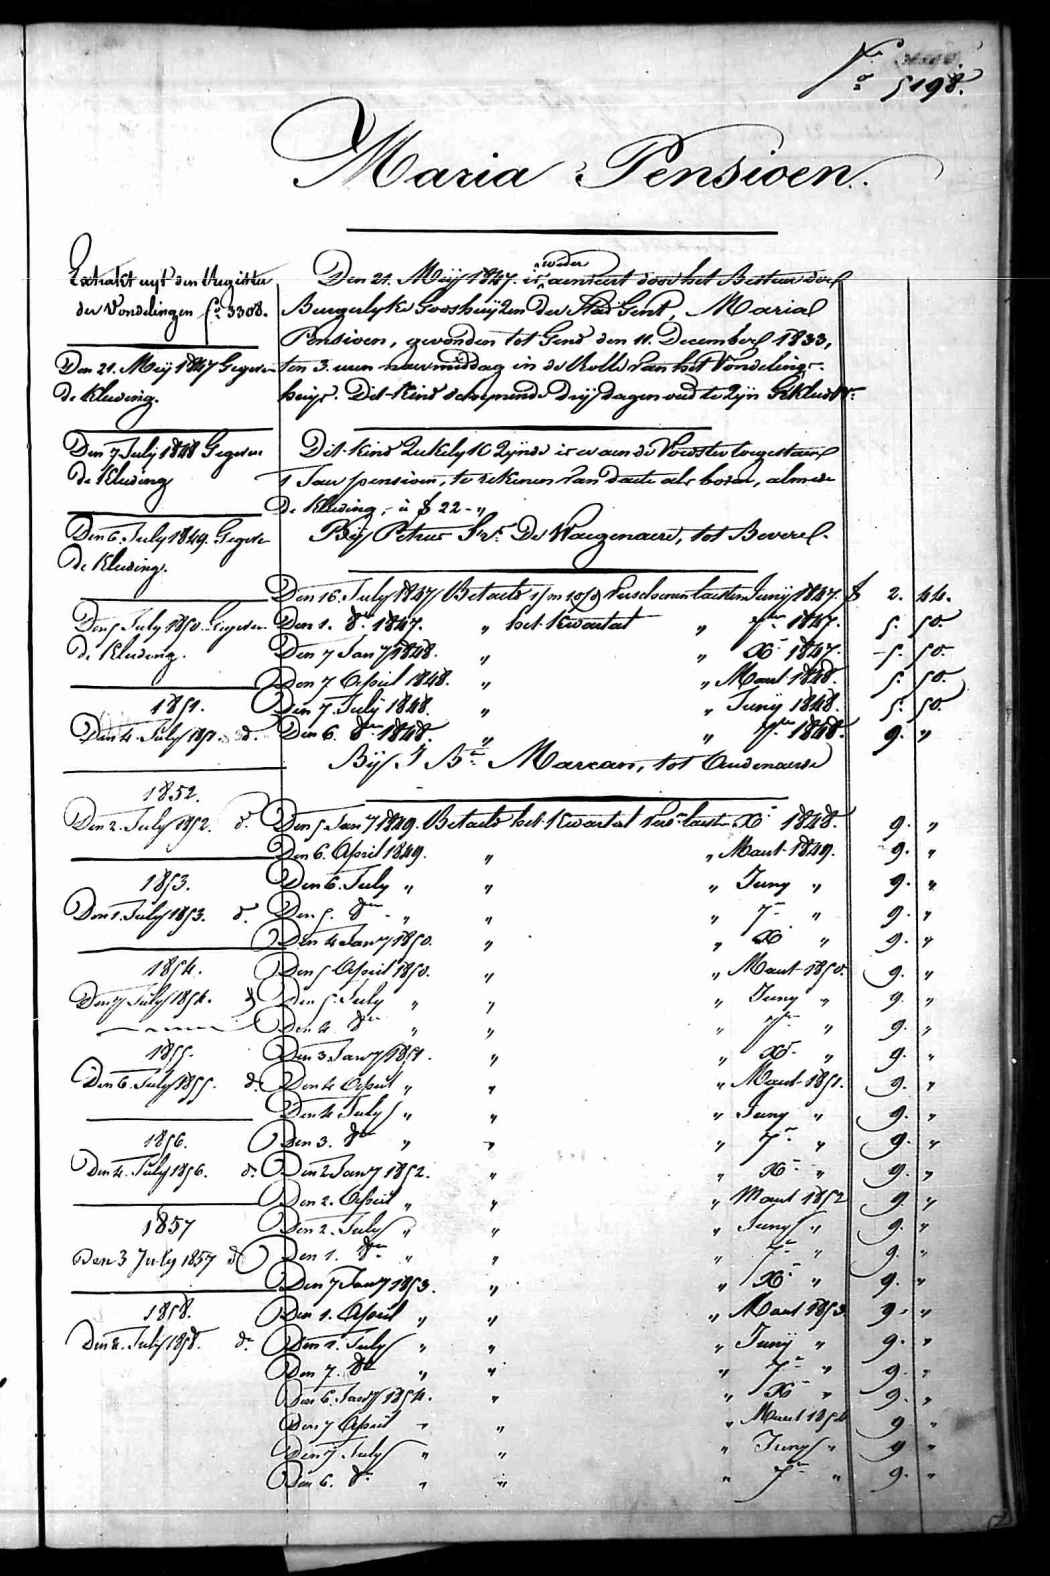 N.º 5198.
Maria Pensioen.
Extrakt uyt den Register
der Vondelingen f.º 3308.
Den 21. Meij 1847 Gegeven
de Kleding.
Den 7 July 1848 Gegeven
de Kleding
Den 6. July 1849. Gegeven
de Kleding.
Den 5 July 1850. Gegeven
de Kleding.
1851.
Den 4. July 1851. dº.
1852.
Den 2. July 1852. dº.
1853.
Den 1. July 1853. dº.
1854.
Den 7 July 1854. dº
1855.
Den 6. July 1855. dº.
1856.
Den 4. July 1856. dº.
1857
Den 3 July 1857 dº
1858.
Den 2. July 1858. dº.
weder
Den 21. Meij 1847. is aenveert door het Bestuer der
Burgerlyke Godshuijzen der Stad Gent, Maria
Pensioen, gevonden tot Gend den 11. December 1833,
ten 3. uren naermiddag in de Rolle van het Vondeling-
huijs. Dit Kind schynende Drij dagen oud te zyn Gekleed
Dit Kind Ziekelyk zynde is er aen de Voedster toegestaen
1 Jaer pensioen, te rekenen van daete als boven, almede
de Kleding, à f 22 - "
Bij Petrus Fr.s De Waegenaere, tot Bevere.
Den 16. July 1847 Betaeld 1/m 10/d verschenen laetsten Junij 1847. f 2. 44.
Den 1. 8ber 1847. " het Kwartael " 7ber 1847. 5. 50.
Den 7 Jany 1848. " " Xber 1847. 5. 50.
Den 7 April 1848. " " Maert 1848. 5. 50.
Den 7. July 1848. " " Junij 1848. 5. 50.
Den 6. 8ber 1848. " " 7ber 1848. 9. "
Bij J. Bte Marcan, tot Audenaerde
Den 5 Jany 1849. Betaeld het Kwartael vers. laetsten Xber 1848. 9. "
Den 6. April 1849. " " Maert 1849. 9. "
Den 6. July " " " Juny " 9. "
Den 5. 8ber " " " 7ber " 9. "
Den 4 Jany 1850. " " Xber " 9. "
Den 5 April 1850. " " Maert 1850. 9. "
Den 5. July " " " Juny " 9. "
Den 4. 8ber " " " 7ber " 9. "
Den 3 Jany 1851. " " Xber " 9. "
Den 4 April " " " Maert 1851. 9. "
Den 4 July " " " Juny " 9. "
Den 3. 8ber " " " 7ber " 9. "
Den 2 Jany 1852. " " Xber " 9. "
Den 2. April " " " Maert 1852 9. "
Den 2. July " " " Juny " 9. "
Den 1. 8ber " " " 7ber " 9. "
Den 7 Jany 1853. " " Xber " 9. "
Den 1. April " " " Maert 1853. 9. "
Den 1. July " " " Junij " 9. "
Den 7. 8ber " " " 7ber " 9. "
Den 6. Jany 1854. " " Xber " 9. "
Den 7 April " " " Maert 1854 9 "
Den 7 July " " " Juny " 9 "
Den 6. 8ber " " " 7ber " 9. "